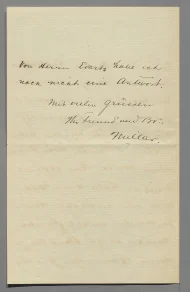 Von Herrn Evarts habe ich
noch nicht eine Antwort.
Mit vielen Grüssen
Ihr Freund und Br.